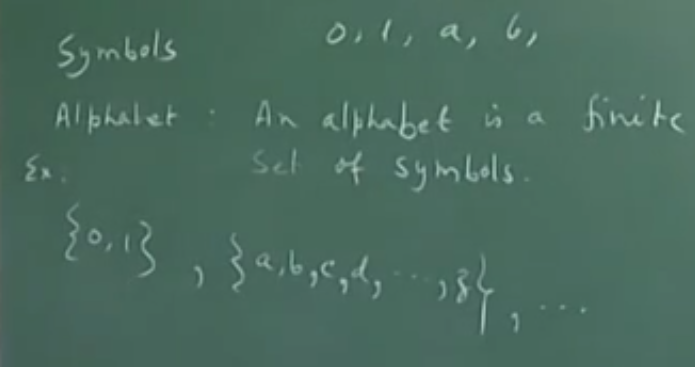 Symbols 0, 1, a, b,
Alphabet : An alphabet is a finite
Ex. Set of symbols.
{0,1} , {a,b,c,d, ..., z} , ...